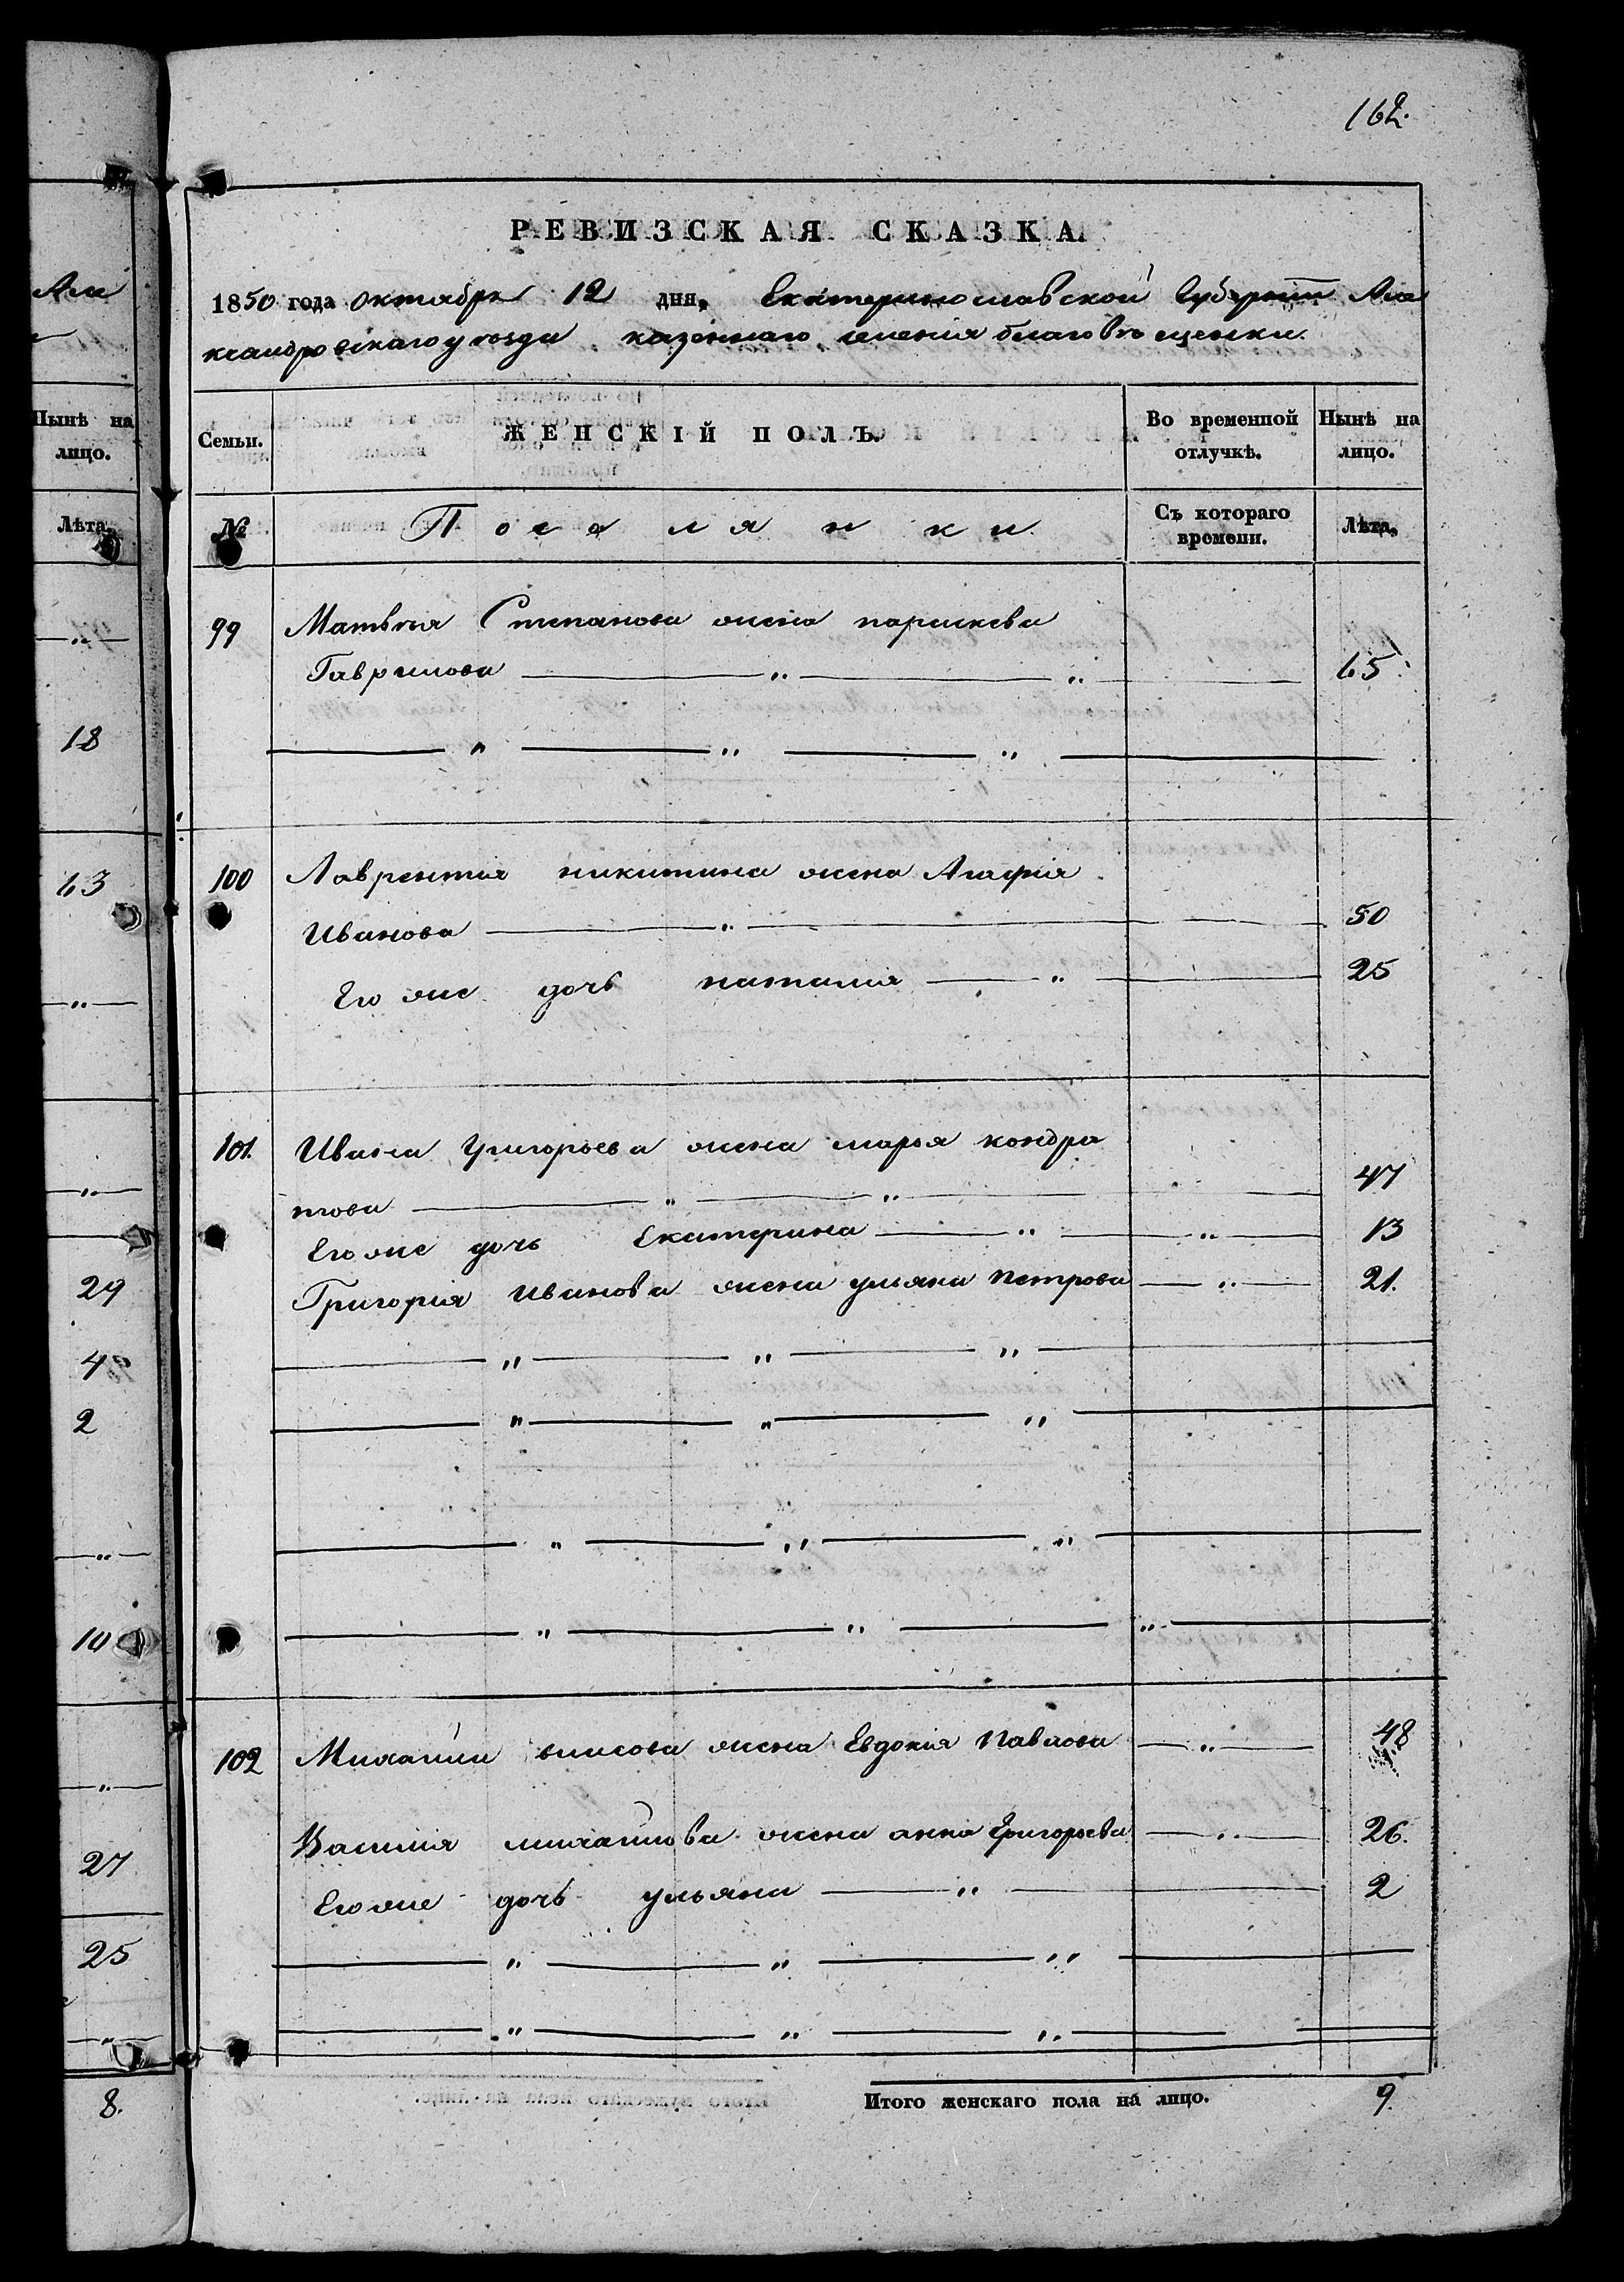 Але
Нынѣ на
лицо.
Лѣта.
18
63
29
4
2
10
27
25
8.
162.
РЕВИЗСКАЯ СКАЗКА.
1850 года октября 12 дня, Екатеринославской Губернии Але
ксандровскаго уѣзда казеннаго селенія благовѣщенки.
Семьи.
ЖЕНСКІЙ ПОЛЪ.
Во временной
отлучкѣ.
Нынѣ на
лицо.
№
Поселянки
Съ котораго
времени.
Лѣта.
99 Матвѣя Степанова жена параскева
Гаврилова — „ — „ — 65
— „ — „ — „ —
100 Лаврентія никитина жена Агафія
Иванова — „ — 50
Его же дочь наталия — „ — 25
101. Ивана Григорьева жена марья кондра
това — „ — „ — 47
Его же дочь Екатерина — „ — „ — 13
Григорія иванова жена ульяна петрова — „ — 21.
— „ — „ — „ —
— „ — „ — „ —
— „ — „ — „ —
— „ — „ — „ —
102 Михайла жена Евдокия Павлова — „ — 48
Василия михайлова жена анна Григорьева — „ — 26.
Его же дочь ульяна — „ — 2
— „ — „ — „ —
— „ — „ — „ —
Итого женскаго пола на лицо. 9.